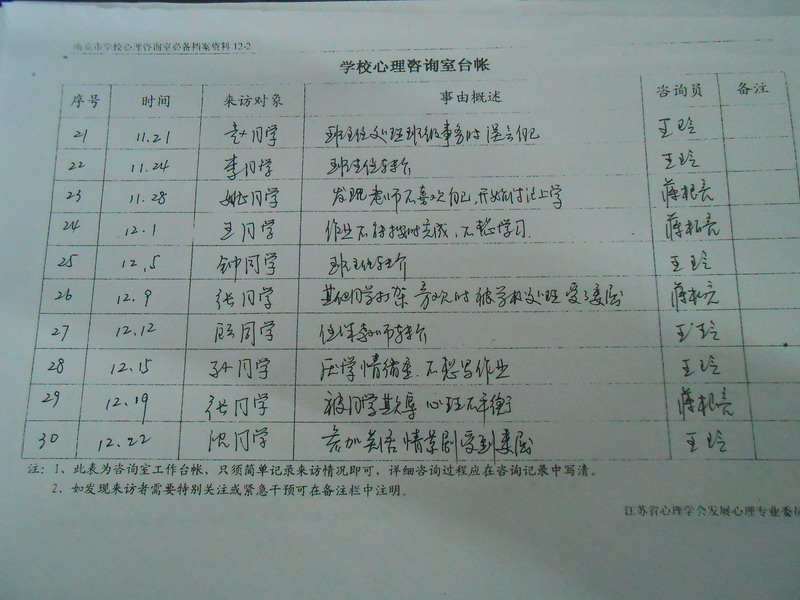 南京市学校心理咨询室必备档案资料 12-2
学校心理咨询室台帐
序号 时间 来访对象 事由概述 咨询员 备注
21 11.21 同学 班主任处理班级事务时误会自己 王玲
22 11.24 李同学 班主任转介 王玲
23 11.28 姚同学 发现老师不喜欢自己,开始讨厌上学 蒋根亮
24 12.1 王同学 作业不能按时完成,不想学习. 蒋根亮
25 12.5 钟同学 班主任转介 王玲
26 12.9 张同学 其他同学打架 旁观时被学校处理 受了委屈 蒋根亮
27 12.12 顾同学 任课老师转介 王玲
28 12.15 孙同学 厌学情绪重.不想写作业 王玲
29 12.19 张同学 被同学欺辱 心理不平衡 蒋根亮
30 12.22 沈同学 参加英语情景剧受到委屈 王玲
注:1、此表为咨询室工作台帐,只须简单记录来访情况即可,详细咨询过程应在咨询记录中写清。
2、如发现来访者需要特别关注或紧急干预可在备注栏中注明。
江苏省心理学会发展心理专业委